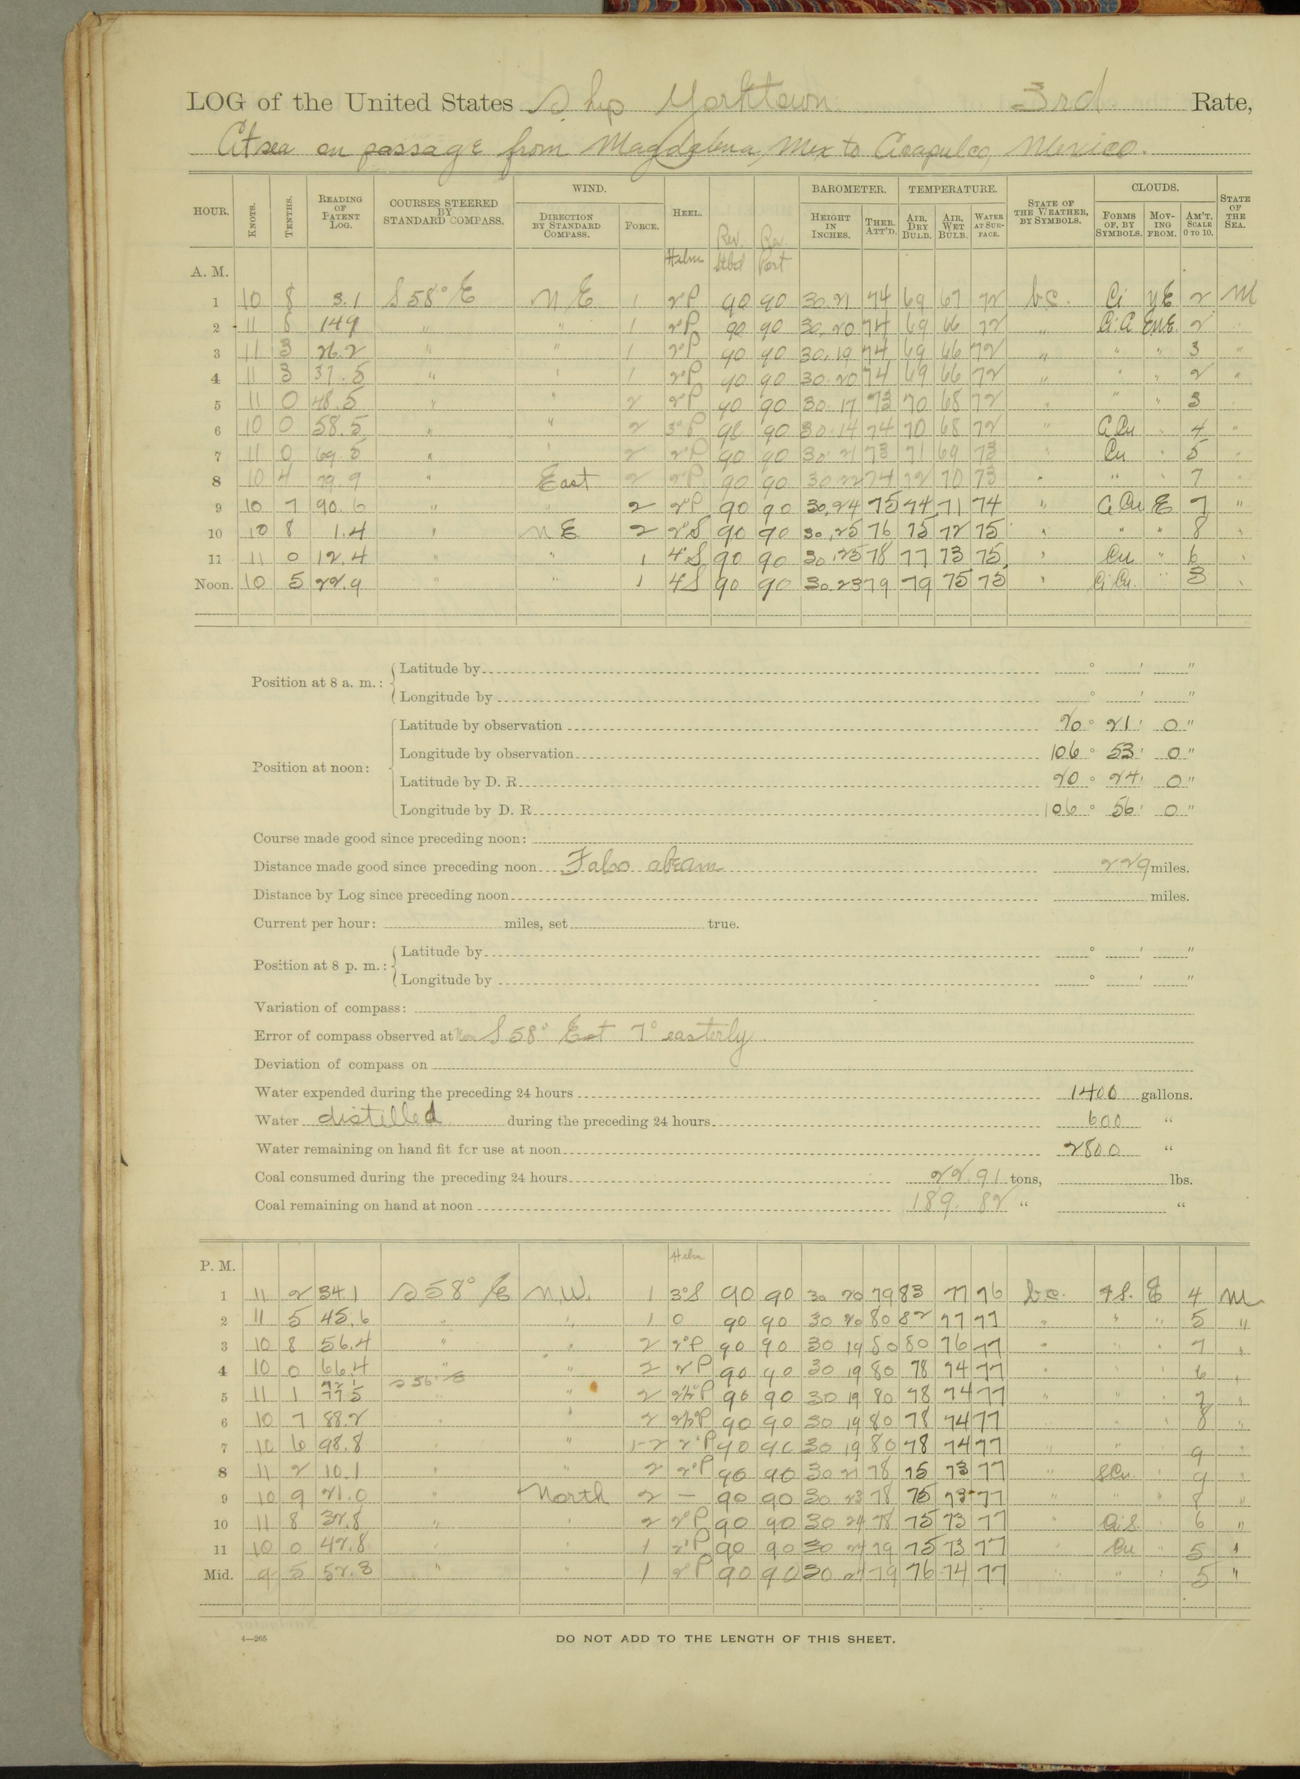 LOG of the United States Ship Yorktown. 3rd Rate,
At sea on passage from Magdalena, Mex to Acapulco, Mexico.
WIND. BAROMETER. TEMPERATURE. CLOUDS.
HOUR. KNOTS. TENTHS. READING OF PATENT LOG. COURSES STEERED BY STANDARD COMPASS. DIRECTION BY STANDARD COMPASS. FORCE. HEEL. HEIGHT IN INCHES. THER. ATT'D. AIR, DRY BULB. AIR, WET BULB. WATER AT SURFACE. STATE OF THE WEATHER, BY SYMBOLS. FORMS OF, BY SYMBOLS. MOVING FROM. AM'T. SCALE 0 TO 10. STATE OF THE SEA.
A. M. Helm Rev. Stbd Rev. Port
1 10 8 3.1 S 58° E N E 1 2°P 90 90 30.21 74 69 67 72 bc. Ci NE 2 M
2 11 8 14.9 " " 1 2°P 90 90 30.20 74 69 66 72 " ENE 2
3 11 3 26.2 " " 1 2°P 90 90 30.19 74 69 66 72 " " " 3 "
4 11 3 37.5 " " 1 2°P 90 90 30.20 74 69 66 72 " " " 2 "
5 11 0 48.5 " " 2 2P 90 90 30.17 73 70 68 72 " " " 3
6 10 0 58.5 " " 2 3°P 90 90 30.14 74 70 68 72 " " 4 "
7 11 0 69.5 " " 2 2°P 90 90 30.21 73 71 69 73 " Cu " 5 "
8 10 4 79.9 " East 2 2°P 90 90 30.22 74 72 70 73 " " " 7
9 10 7 90.6 " " 2 2°P 90 90 30.24 75 74 71 74 " E 7 "
10 10 8 1.4 " N E 2 2°S 90 90 30.25 76 75 72 75 " " " 8 "
11 11 0 12.4 " 1 4°S 90 90 30.25 78 77 73 75 " Cu " 6 "
Noon. 10 5 22.9 " 1 4S 90 90 30.23 79 79 75 75 " Ci Cu. " 3 "
Position at 8 a. m.: Latitude by ° ' "
Longitude by ° ' "
Position at noon: Latitude by observation 20° 21' 0"
Longitude by observation 106° 53' 0"
Latitude by D. R. 20° 24' 0"
Longitude by D. R. 106° 56' 0"
Course made good since preceding noon:
Distance made good since preceding noon Falso abeam 229 miles.
Distance by Log since preceding noon miles.
Current per hour: miles, set true.
Position at 8 p. m.: Latitude by ° ' "
Longitude by ° ' "
Variation of compass:
Error of compass observed at S 58° East 7° easterly
Deviation of compass on
Water expended during the preceding 24 hours 1400 gallons.
Water distilled during the preceding 24 hours 600 "
Water remaining on hand fit for use at noon 2800 "
Coal consumed during the preceding 24 hours 22.91 tons, lbs.
Coal remaining on hand at noon 189.82 " "
P. M. Helm
1 11 2 34.1 S 58° E N.W. 1 3°S 90 90 30 20 79 83 77 76 bc. E 4 M
2 11 5 45.6 " " 1 0 90 90 30 20 80 82 77 77 " " " 5 "
3 10 8 56.4 " " 2 2°P 90 90 30 19 80 80 76 77 " " " 7 "
4 10 0 66.4 " " 2 2P 90 90 30 19 80 78 74 77 " " " 6 "
5 11 1 77.5 S 56° E " 2 2½°P 90 90 30 19 80 78 74 77 " " " 7 "
6 10 7 88.2 " " 2 2½°P 90 90 30 19 80 78 74 77 " " 8 "
7 10 6 98.8 " " 1-2 2°P 90 90 30 19 80 78 74 77 " " " 9 "
8 11 2 10.1 " " 2 2°P 90 90 30 21 78 75 73 77 " SCu. " 9 "
9 10 9 21.0 " North 2 — 90 90 30 23 78 75 73 77 " " " 8 "
10 11 8 32.8 " " 2 2°P 90 90 30 24 78 75 73 77 " Ci.S. " 6 "
11 10 0 42.8 " " 1 2°P 90 90 30 24 79 75 73 77 " Cu " 5 "
Mid. 9 5 52.3 " " 1 2P 90 90 30 21 79 76 74 77 " " " 5 "
4—265
DO NOT ADD TO THE LENGTH OF THIS SHEET.